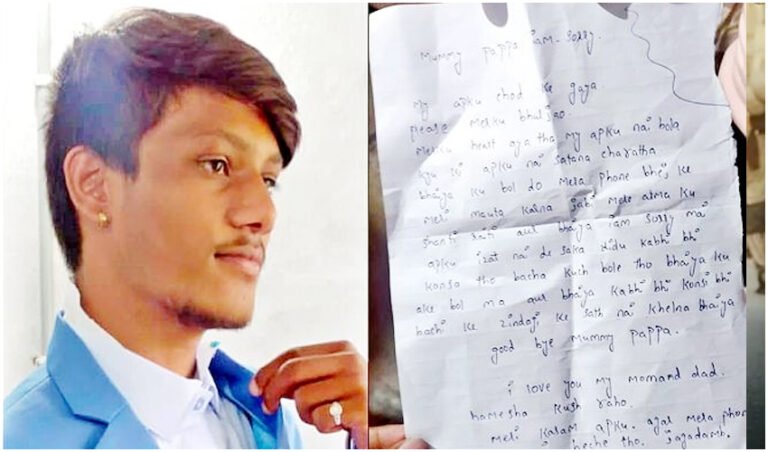 Mummy pappa Iam sorry.
my apku chod ke gaya.
pease merku bhuljao.
merku heart aya tha my apku nai bola
kyu ki apku nai satana charatha
bhaiya ku bol do mera phone bhej ke
meri mauta karna jabi meri atma ku
shanti rati aur bhaiya iam sorry mai
apku izat nai de saka didu kabhi bhi
konsa tho bacha kuch bole tho bhaiya ku
ake bol ma aur bhaiya kabhi bhi konsi bhi
bachi ke zindaji ke sath nai khelna bhaiya
good bye Mummy pappa.
i love you my momand dad.
hamesha kush raho.
meri kasam apku. agar mera phon
beche tho.